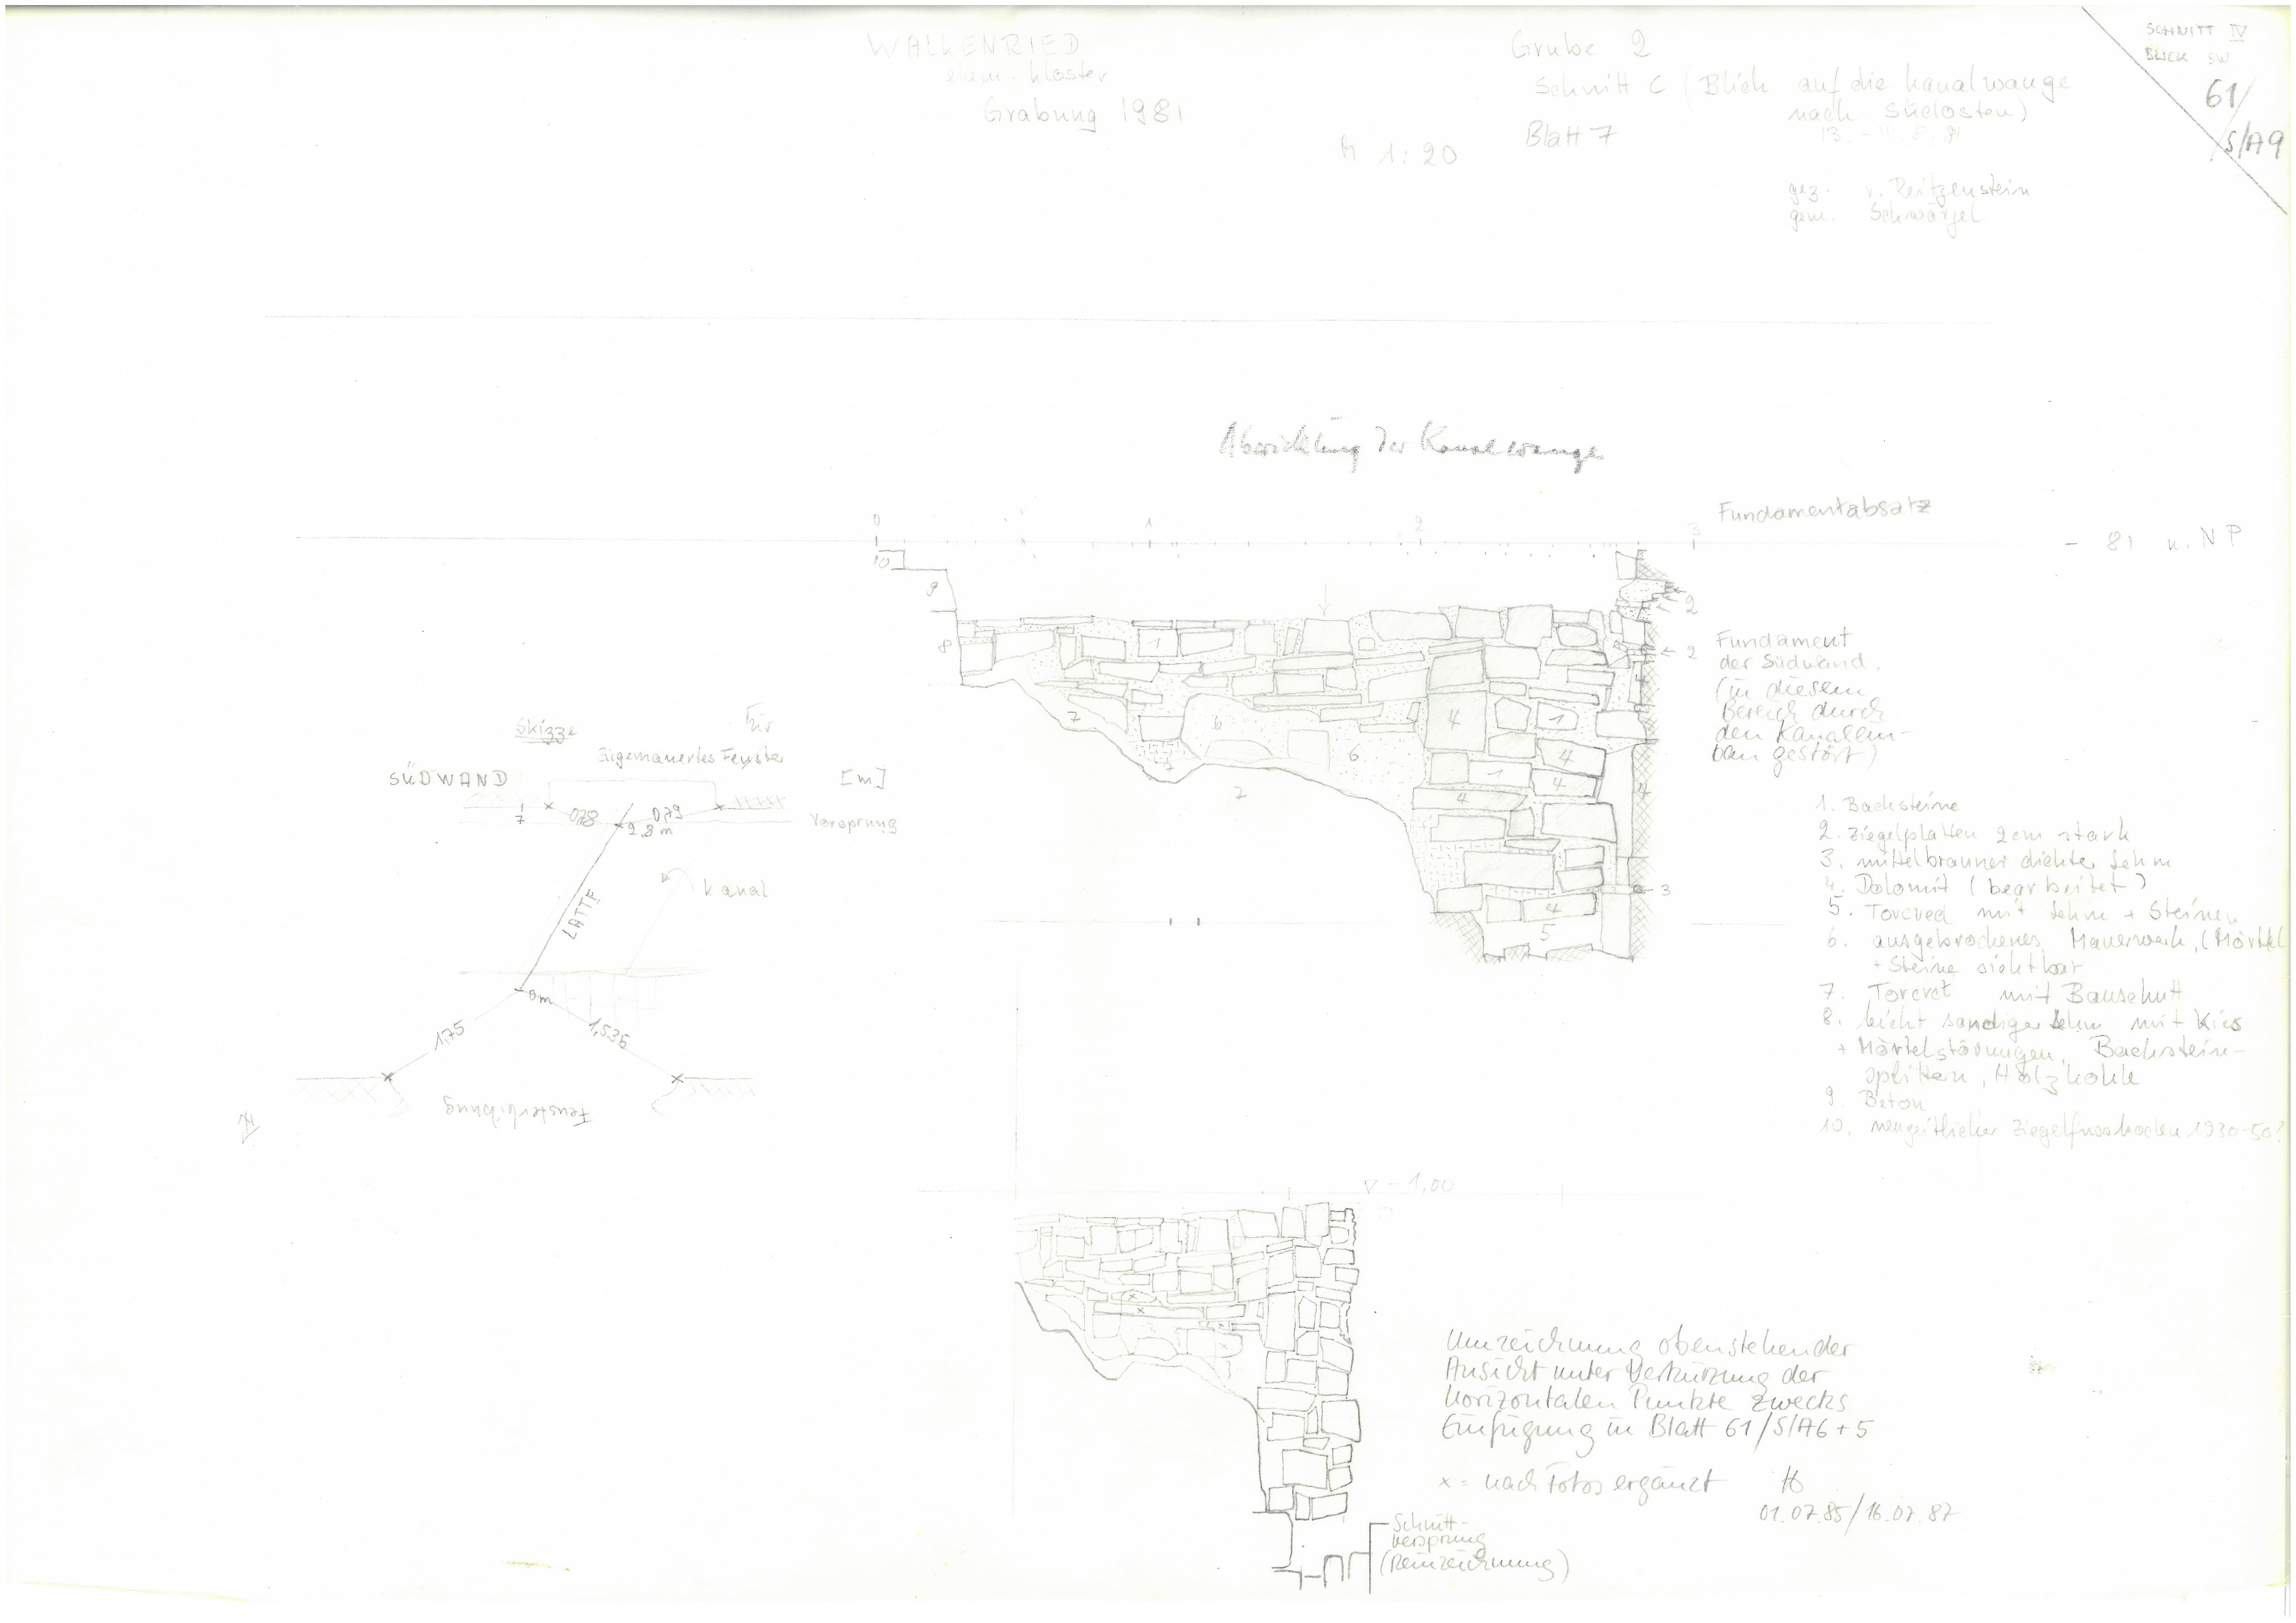 WALKENRIED
ehem. Kloster
Grabung 1981
M 1:20
Grube 2
Schnitt C (Blick auf die Kanalwange
nach Südosten)
Blatt 7
13. - 8. 81
gez. v. Reitzenstein
gem.
SCHNITT IV
BLICK SW
61/
S/A9
Abwicklung der Kanalwange
0 1 2 3
Fundamentabsatz
- 81 u. NP
10
9
8
1
2
2
7
6
6
4
1
4
4
1
4
4
4
7
7
3
4
5
Fundament
der Südwand.
(in diesem
Bereich durch
den Kanalein-
bau gestört)
Skizze
Tür
Zugemauertes Fenster
SÜDWAND
[m]
7
078
079
2,8 m
Vorsprung
Kanal
LATTE
0m
1,75
1,535
Fensterbildung
N
1. Backsteine
2. Ziegelplatten 2cm stark
3. mittelbrauner dichter Lehm
4. Dolomit (bearbeitet)
5. Torcret mit Lehm + Steinen
6. ausgebrochenes Mauerwerk, (Mörtel
+ Steine sichtbar
7. Torcret mit Bauschutt
8. leicht sandiger Lehm mit Kies
+ Mörtelstörungen, Backstein-
splittern, Holzkohle
9. Beton
10. neuzeitlicher Ziegelfussboden 1930-50?
▽ -1,00
x
x
x
x
Umzeichnung obenstehender
Ansicht unter Verkürzung der
horizontalen Punkte zwecks
Einfügung in Blatt 61/S/A6+5
x = nach Fotos ergänzt
01.07.85/16.07.87
Schnitt-
versprung
(Reinzeichnung)